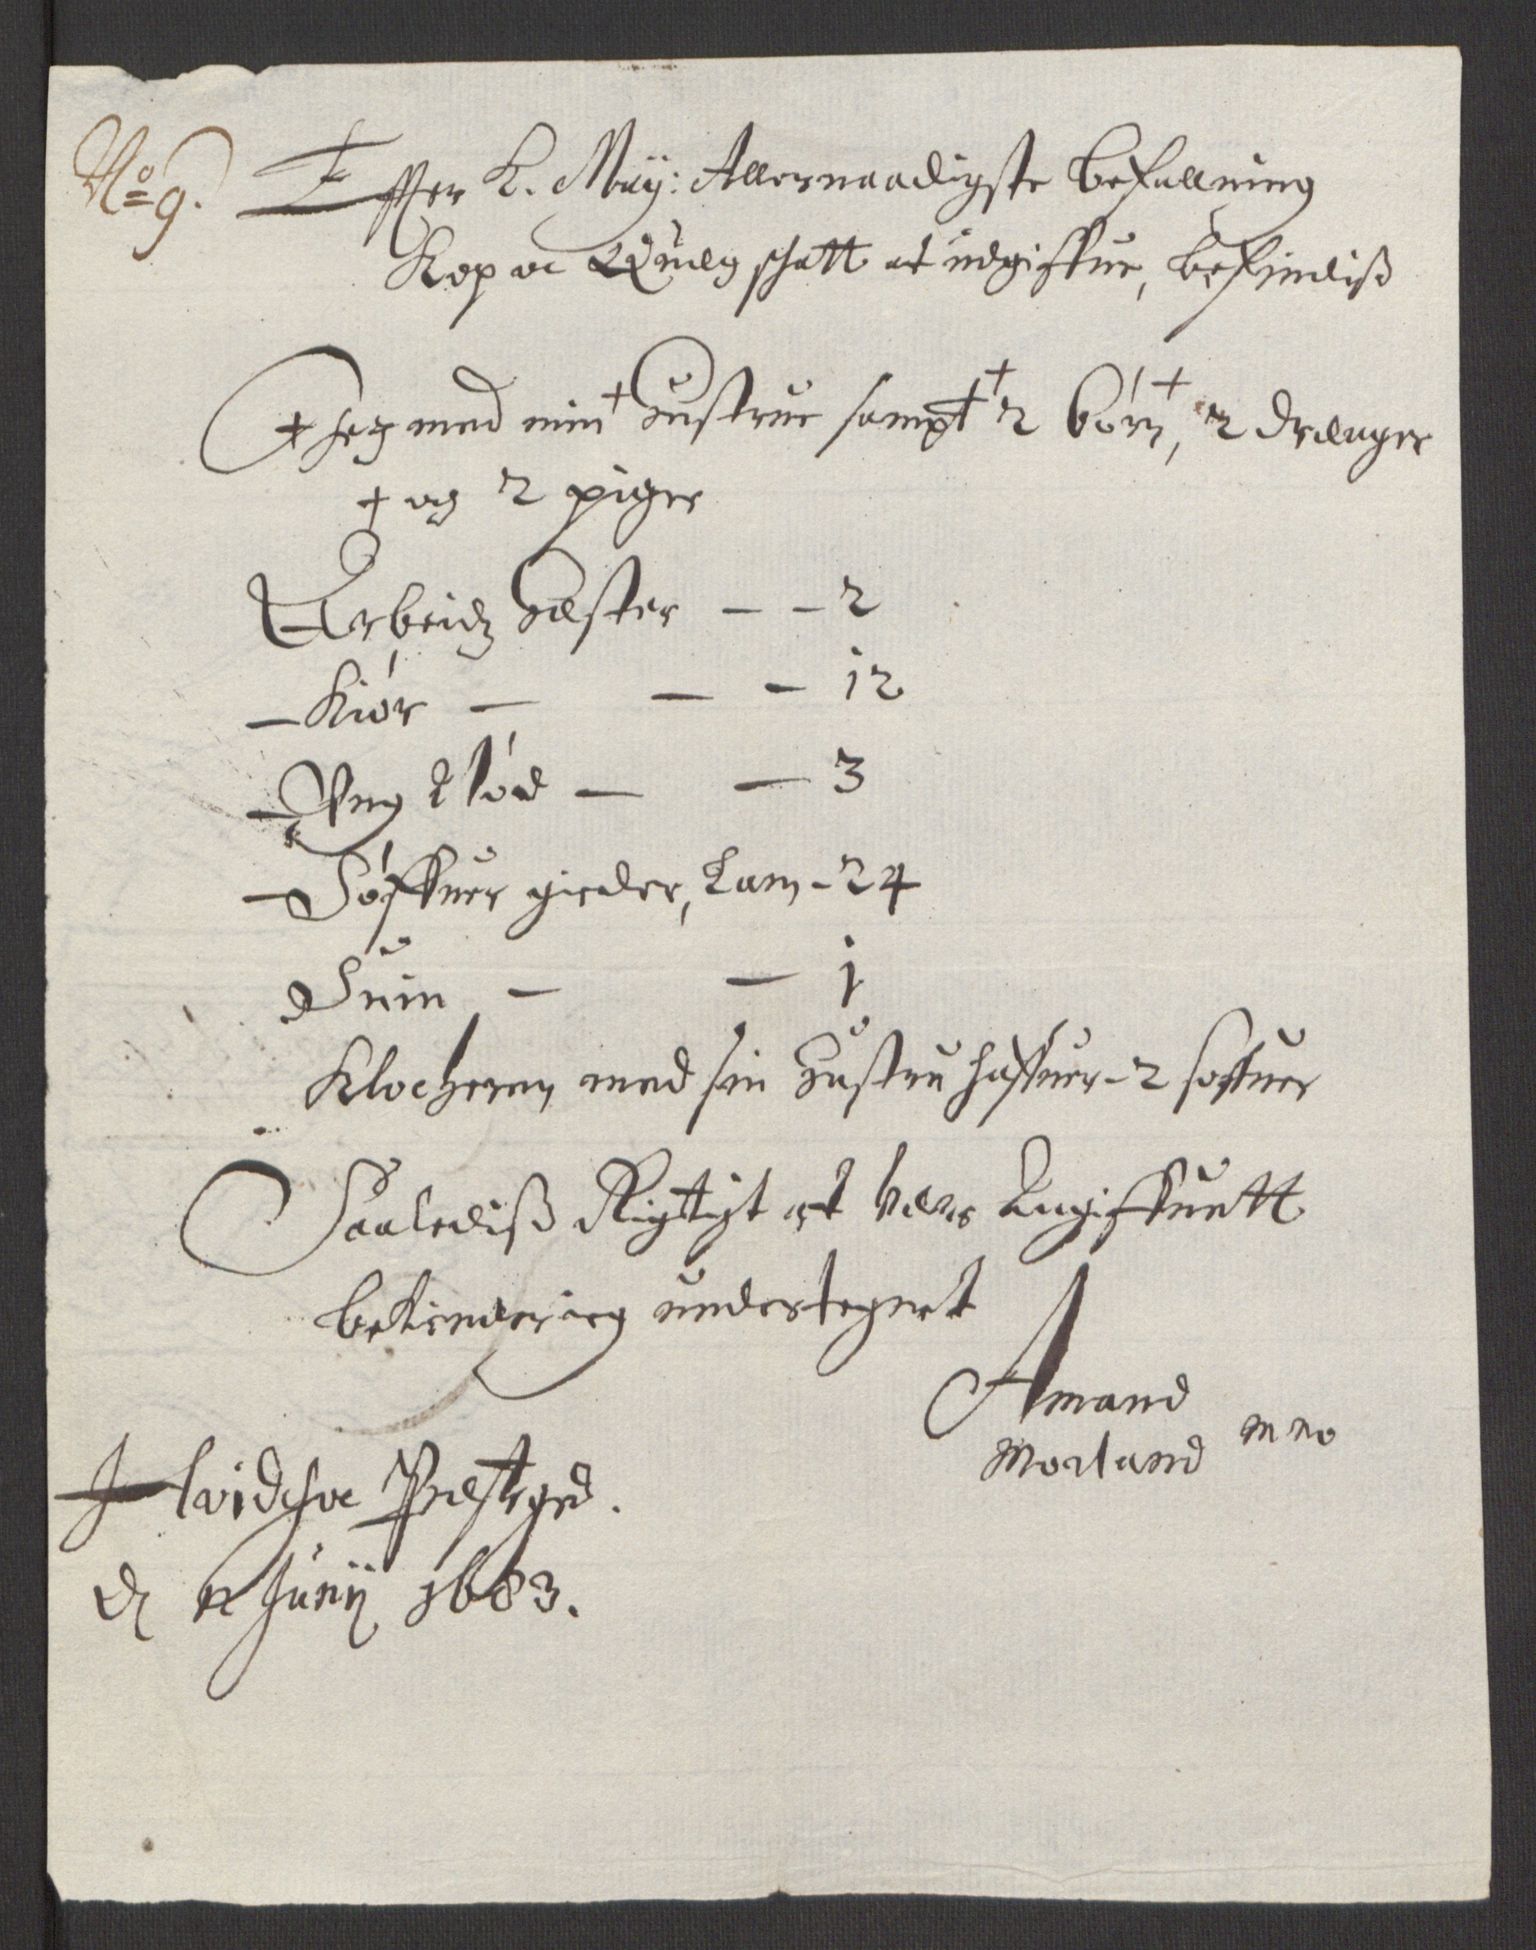 No 9.
Effter K. May: Allernaadigste befallning
Kop oc Quæg schatt at udgiffue, befindiß
+ Jeg med min + Hustrue sampt + 2 børn +, 2 drænger
+ og 2 piger
Arbeidz Hæster — — 2
— Kiør — — — 12
— Ung Nød — — 3
— Søffuer gieder, Lam - 24
Suin — — 1
Klocheren med sin Hustru haffuer - 2 søffuer
Saalediß Rigtigt at være Angiffuett
bekiender ieg undertegnet
Amand
Morland mpp
Hvidesøe Præstegrd.
d Junij 1683.